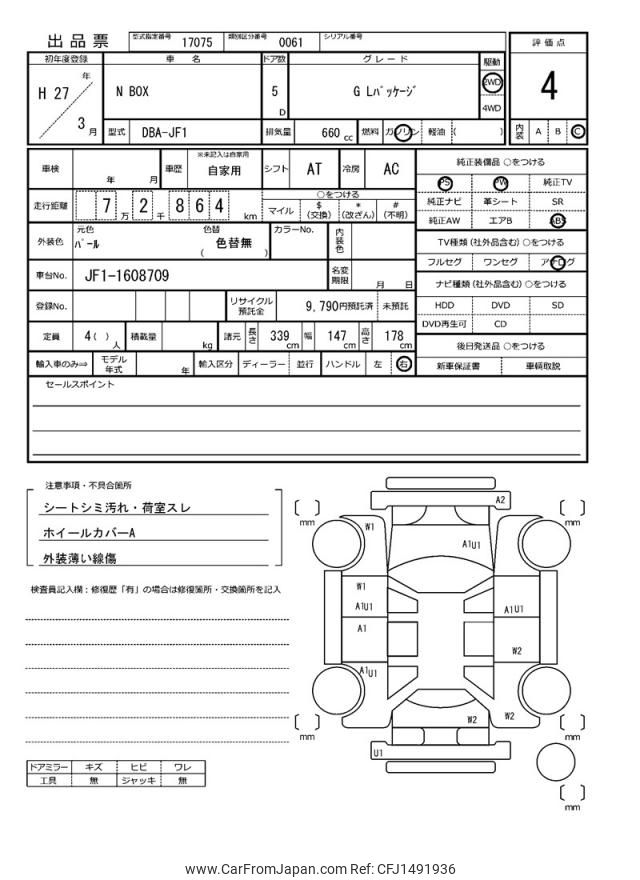 出品票
型式指定番号 17075 類別区分番号 0061 シリアル番号
評価点
4
内装 A B C
初年度登録 車名 ドア数 グレード 駆動
H 27 年 3 月
N BOX
5 D
G Lパッケージ
2WD
4WD
型式 DBA-JF1 排気量 660 cc 燃料 ガソリン 軽油 ( )
車検 年 月 車歴 ※未記入は自家用 自家用 シフト AT 冷房 AC
走行距離 7 万 2 千 8 6 4 km
○をつける
マイル $ (交換) * (改ざん) # (不明)
外装色 元色 パール 色替 色替無 ( ) カラーNo. 内装色
車台No. JF1-1608709 名変期限 月 日
登録No. リサイクル預託金 9,790円預託済 未預託
定員 4( ) 人 積載量 kg 諸元 長さ 339 cm 幅 147 cm 高さ 178 cm
輸入車のみ⇒ モデル年式 年 輸入区分 ディーラー 並行 ハンドル 左 右
純正装備品 ○をつける
PS PW 純正TV
純正ナビ 革シート SR
純正AW エアB ABS
TV種類 (社外品含む) ○をつける
フルセグ ワンセグ アナログ
ナビ種類 (社外品含む) ○をつける
HDD DVD SD
DVD再生可 CD
後日発送品 ○をつける
新車保証書 車輌取説
セールスポイント
注意事項・不具合箇所
シートシミ汚れ・荷室スレ
ホイールカバーA
外装薄い線傷
検査員記入欄：修復歴「有」の場合は修復箇所・交換箇所を記入
ドアミラー キズ ヒビ ワレ
工具 無 ジャッキ 無
A2
mm
mm
W1
A1U1
W1
A1U1
A1U1
A1
W2
A1U1
W2
W2
mm
mm
U1
mm
www.CarFromJapan.com Ref: CFJ1491936